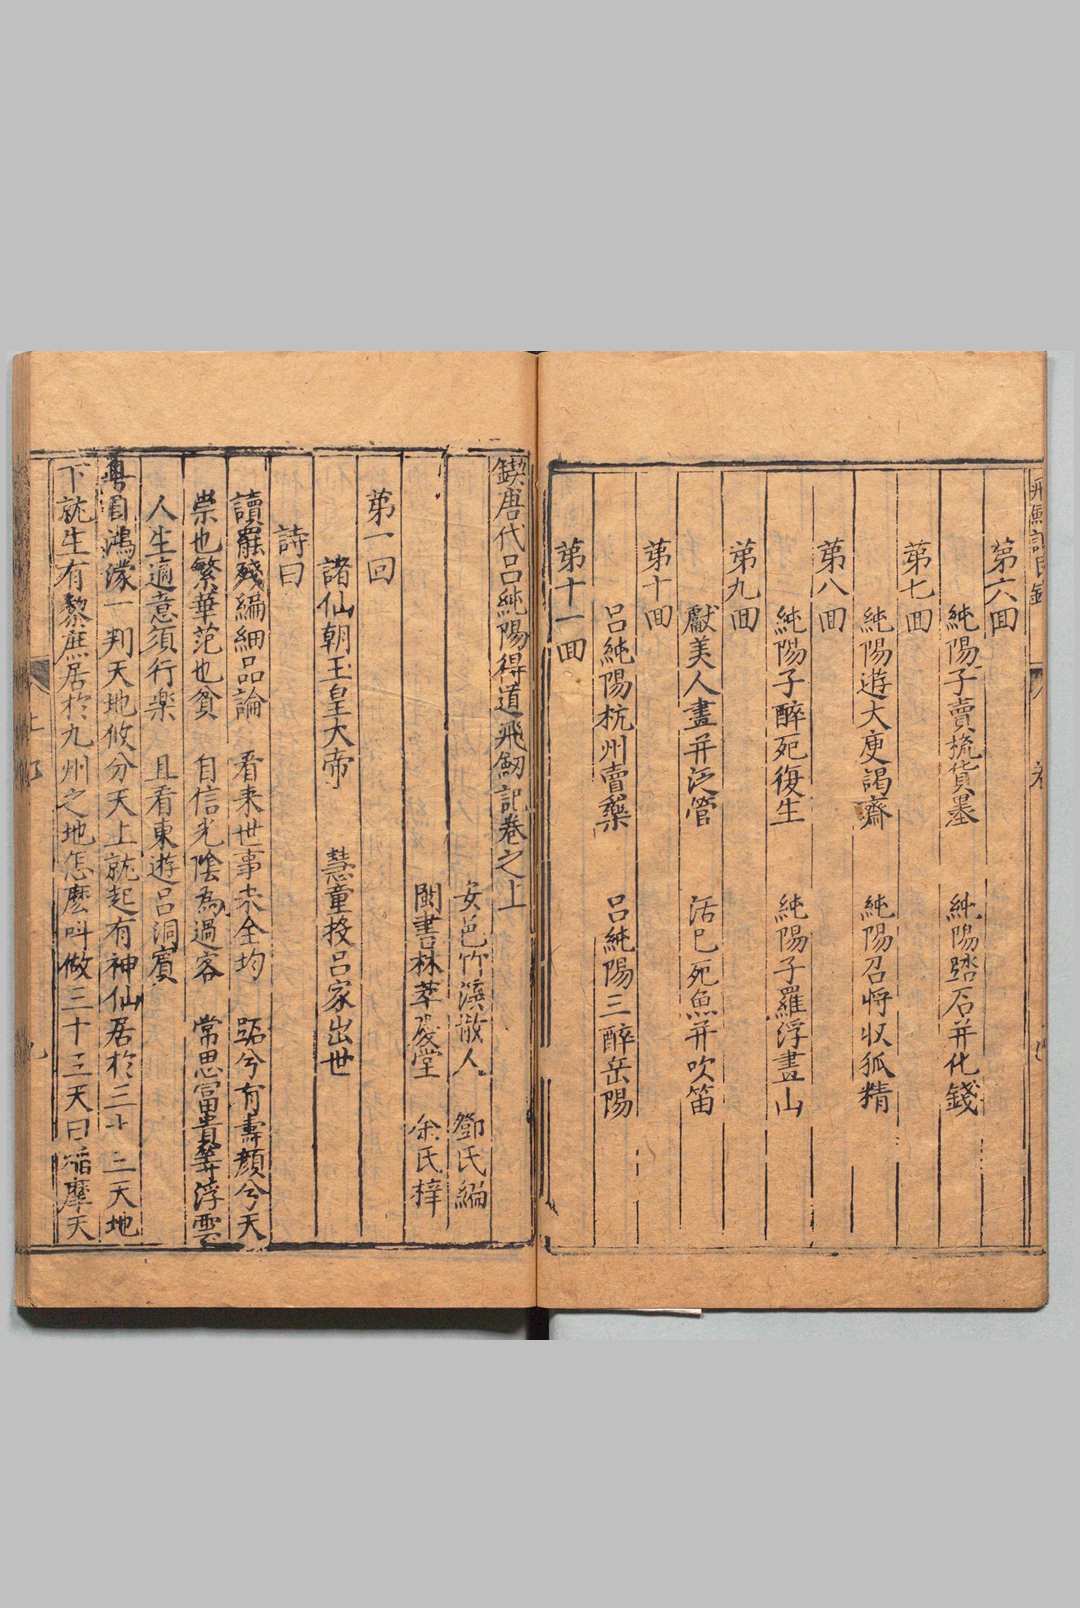 第六回
純陽子賣梳貨墨　純陽踏石并化錢
第七回
純陽遊大庾謁齋　純陽召將収狐精
第八回
純陽子醉死復生　純陽子羅浮畫山
第九回
獻美人畫并泛管　活巳死魚并吹笛
第十回
呂純陽杭州賣藥　呂純陽三醉岳陽
第十一回
鍥唐代呂純陽得道飛劒記卷之上
安邑竹溪散人　鄧氏編
閩書林萃慶堂　余氏梓
第一回
諸仙朝玉皇大帝　慧童投呂家出世
詩曰
讀罷殘編細品論　看来世事未全均　跖兮有壽顏兮天
崇也繁華范也貧　自信光陰為過客　常思富貴等浮雲
人生適意須行楽　且看東遊呂洞賓
粵自鴻濛一判天地攸分天上就起有神仙居於三十三天地
下就生有黎庶居於九州之地怎麽呌做三十三天曰 摩天